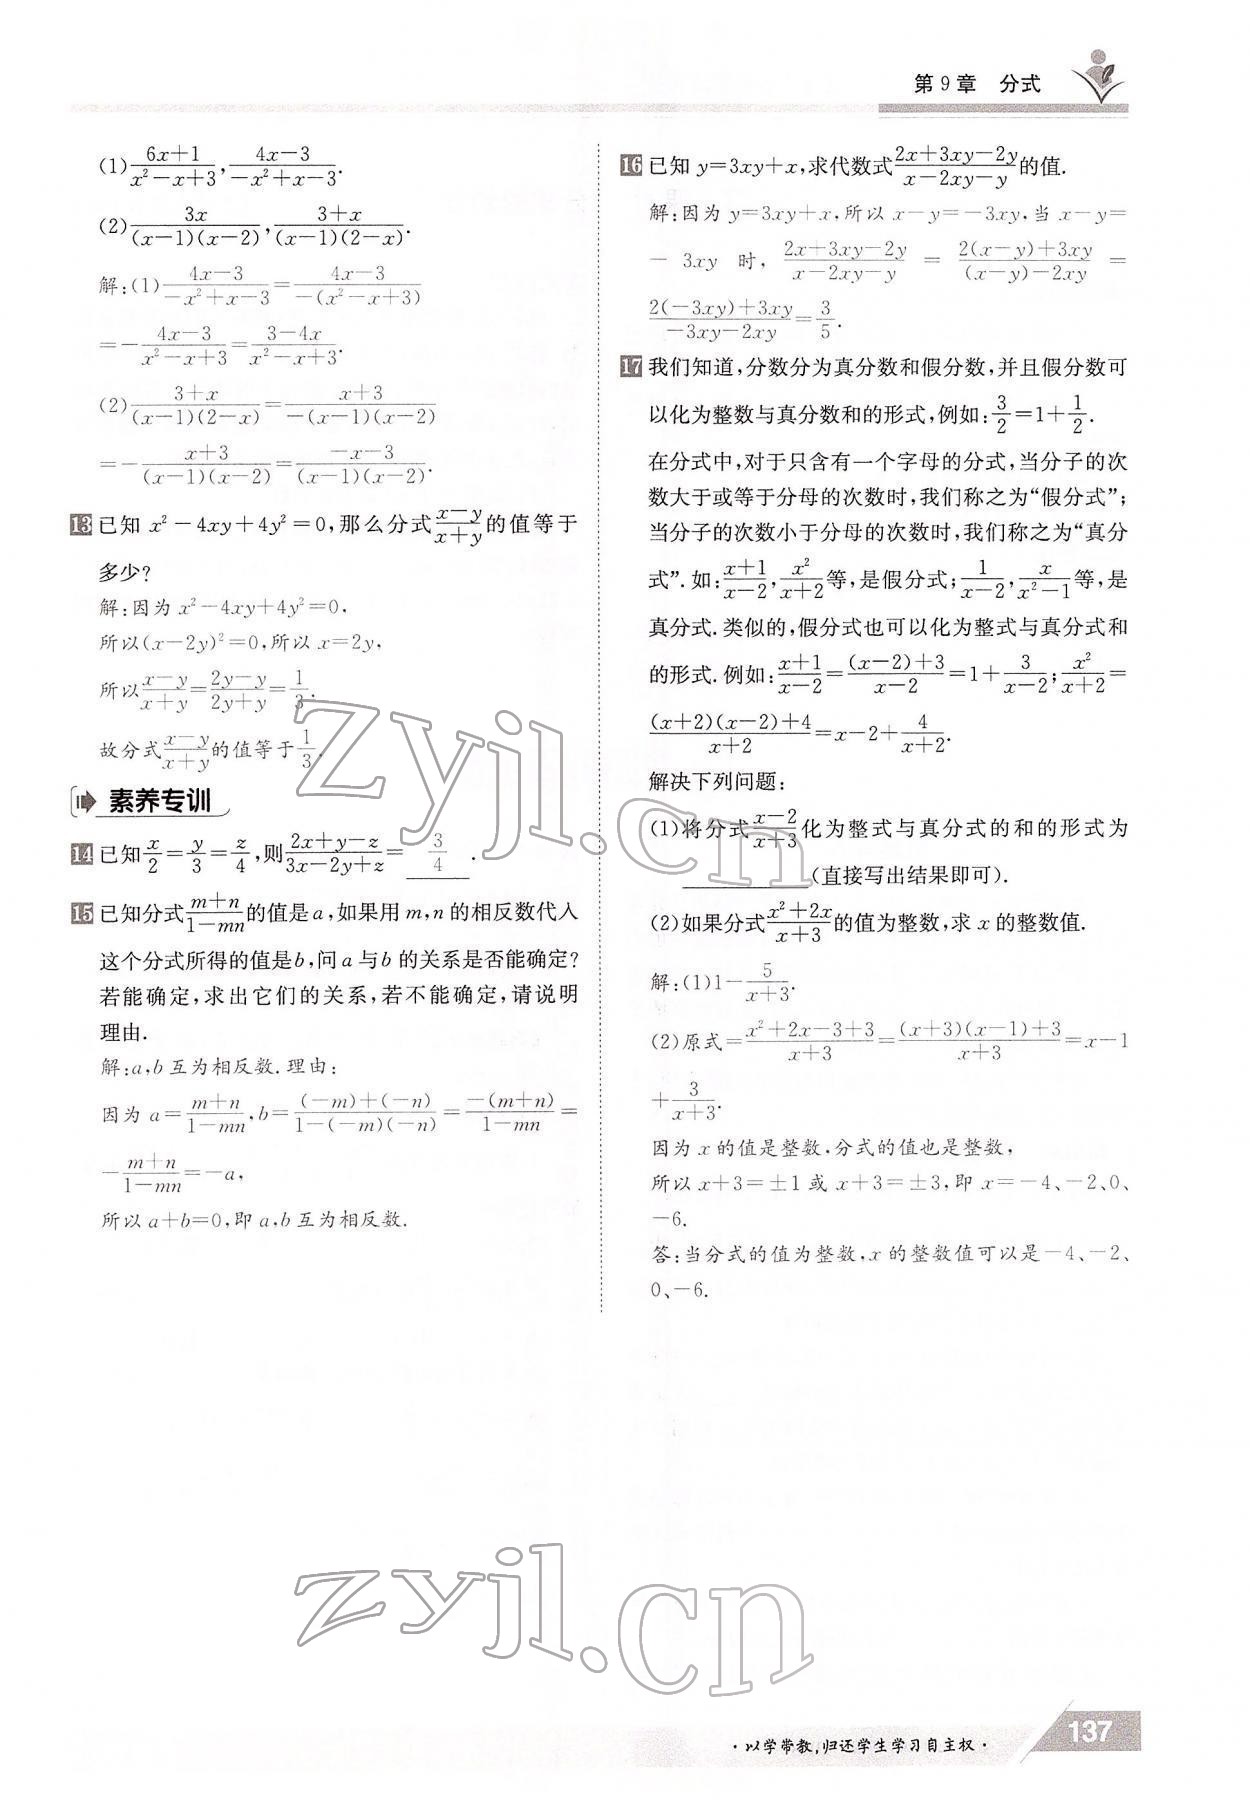 第9章 分式
(1) (6x+1)/(x²-x+3), (4x-3)/(-x²+x-3).
(2) 3x/((x-1)(x-2)), (3+x)/((x-1)(2-x)).
解:(1) (4x-3)/(-x²+x-3) = (4x-3)/(-(x²-x+3))
=-(4x-3)/(x²-x+3) = (3-4x)/(x²-x+3).
(2) (3+x)/((x-1)(2-x)) = (x+3)/(-(x-1)(x-2))
=-(x+3)/((x-1)(x-2)) = (-x-3)/((x-1)(x-2)).
13 已知 x²-4xy+4y²=0,那么分式 (x-y)/(x+y) 的值等于
多少?
解:因为 x²-4xy+4y²=0.
所以(x-2y)²=0,所以 x=2y,
所以 (x-y)/(x+y) = (2y-y)/(2y+y) = 1/3.
故分式 (x-y)/(x+y) 的值等于 1/3.
素养专训
14 已知 x/2 = y/3 = z/4,则 (2x+y-z)/(3x-2y+z) = 3/4 .
15 已知分式 (m+n)/(1-mn) 的值是 a,如果用 m,n 的相反数代入
这个分式所得的值是b,问 a 与 b 的关系是否能确定?
若能确定,求出它们的关系,若不能确定,请说明
理由.
解:a,b 互为相反数.理由:
因为 a= (m+n)/(1-mn), b= ((-m)+(-n))/(1-(-m)(-n)) = (-(m+n))/(1-mn) =
-(m+n)/(1-mn) =-a,
所以 a+b=0,即 a,b 互为相反数.
16 已知 y=3xy+x,求代数式 (2x+3xy-2y)/(x-2xy-y) 的值.
解:因为 y=3xy+x,所以 x-y=-3xy,当 x-y=
-3xy 时, (2x+3xy-2y)/(x-2xy-y) = (2(x-y)+3xy)/((x-y)-2xy) =
(2(-3xy)+3xy)/(-3xy-2xy) = 3/5.
17 我们知道,分数分为真分数和假分数,并且假分数可
以化为整数与真分数和的形式,例如: 3/2 =1+ 1/2.
在分式中,对于只含有一个字母的分式,当分子的次
数大于或等于分母的次数时,我们称之为“假分式”;
当分子的次数小于分母的次数时,我们称之为“真分
式”.如: (x+1)/(x-2), x²/(x+2) 等,是假分式; 1/(x-2), x/(x²-1) 等,是
真分式.类似的,假分式也可以化为整式与真分式和
的形式.例如: (x+1)/(x-2) = ((x-2)+3)/(x-2) =1+ 3/(x-2); x²/(x+2) =
((x+2)(x-2)+4)/(x+2) =x-2+ 4/(x+2).
解决下列问题:
(1)将分式 (x-2)/(x+3) 化为整式与真分式的和的形式为
(直接写出结果即可).
(2)如果分式 (x²+2x)/(x+3) 的值为整数,求 x 的整数值.
解:(1)1- 5/(x+3).
(2)原式= (x²+2x-3+3)/(x+3) = ((x+3)(x-1)+3)/(x+3) =x-1
+ 3/(x+3).
因为 x 的值是整数,分式的值也是整数,
所以 x+3=±1 或 x+3=±3,即 x=-4、-2、0、
-6.
答:当分式的值为整数,x 的整数值可以是-4、-2、
0、-6.
zyjl.cn
zyjl.cn
·以学带教,归还学生学习自主权·
137